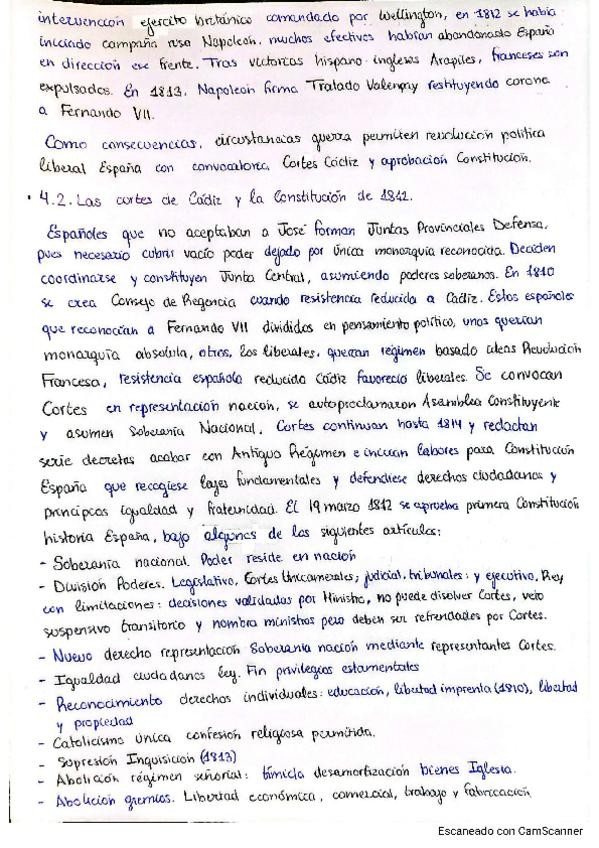 intervención ejercito británico comandado por Wellington, en 1812 se había
iniciado campaña rusa Napoleón, muchos efectivos habían abandonado España
en dirección ese frente. Tras victorias hispano-inglesas Arapiles, franceses son
expulsados. En 1813, Napoleón firma Tratado Valençay restituyendo corona
a Fernando VII.
Como consecuencias, circustancias guerra permiten revolución política
liberal España con convocatoria Cortes Cádiz y aprobación Constitución.
· 4.2. Las cortes de Cádiz y la Constitución de 1812.
Españoles que no aceptaban a José forman Juntas Provinciales Defensa,
pues necesario cubrir vacío poder dejado por única monarquía reconocida. Deciden
coordinarse y constituyen Junta Central, asumiendo poderes soberanos. En 1810
se crea Consejo de Regencia cuando resistencia reducida a Cádiz. Estos españoles
que reconocían a Fernando VII divididos en pensamiento político, unos querían
monarquía absoluta, otros, los liberales, querían régimen basado ideas Revolución
Francesa, resistencia española reducida Cádiz favoreció liberales. Se convocan
Cortes en representación nación, se autoproclamaron Asamblea Constituyente
y asumen Soberanía Nacional. Cortes continuan hasta 1814 y redactan
serie decretos acabar con Antiguo Régimen e inician labores para Constitución
España que recogiese leyes fundamentales y defendiese derechos ciudadanos y
principios igualdad y fraternidad. El 19 marzo 1812 se aprueba primera Constitución
historia España, bajo algunos de los siguientes artículos:
- Soberanía nacional. Poder reside en nación
- División Poderes. Legislativo, Cortes Unicamerales; judicial, tribunales; y ejecutivo, Rey
con limitaciones: decisiones validadas por Ministro, no puede disolver Cortes, veto
suspensivo transitorio y nombra ministros pero deben ser refrendados por Cortes.
- Nuevo derecho representación Soberanía nación mediante representantes Cortes.
- Igualdad ciudadanos ley. Fin privilegios estamentales
- Reconocimiento derechos individuales: educación, libertad imprenta (1810), libertad
y propiedad
- Catolicismo única confesión religiosa permitida.
- Supresión Inquisición (1813)
- Abolición régimen señorial: tímida desamortización bienes Iglesia.
- Abolición gremios. Libertad económica, comercial, trabajo y fabricación
Escaneado con CamScanner